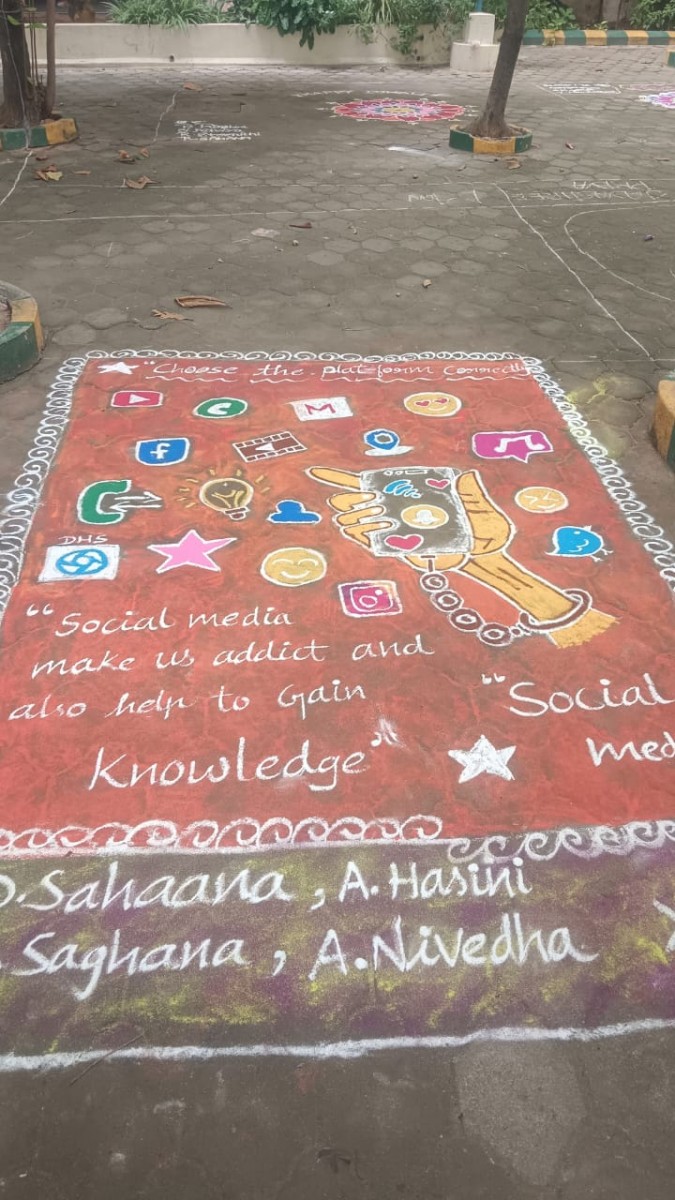 "Choose the platform correctly
DHS
"Social media
make us addict and
also help to Gain
Knowledge"
"Social
med
D.Sahaana, A.Hasini
Saghana, A.Nivedha